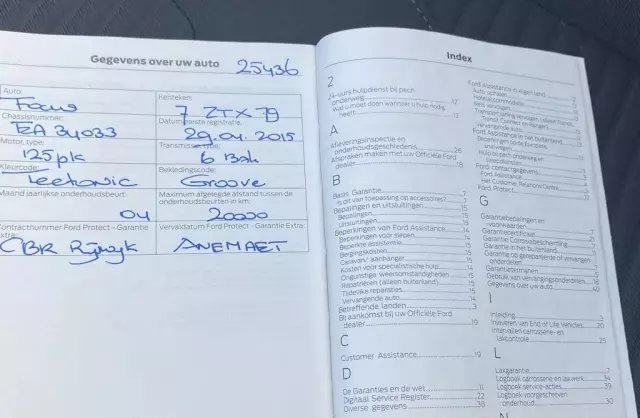 Gegevens over uw auto
25436
Auto:
Focus
Kenteken:
7 ZTX 79
Chassisnummer:
EA 34033
Datum eerste registratie:
29.04.2015
Motor, type:
125pk
Transmissie, type:
6 Bak
Kleurcode:
Tectonic
Bekledingscode:
Groove
Maand jaarlijkse onderhoudsbeurt:
04
Maximum afgelegde afstand tussen de
onderhoudsbeurten in km:
20000
Contractnummer Ford Protect - Garantie
Extra:
CBR Rijswijk
Vervaldatum Ford Protect - Garantie Extra:
ANEMAET
Index
2
24-uurs hulpdienst bij pech
onderweg 12
Wat u moet doen wanneer u hulp nodig
heeft 12
A
Afleveringsinspectie en
onderhoudsgeschiedenis 26
Afspraken maken met uw Officiële Ford
dealer 18
B
Basis Garantie 7
Is dit van toepassing op accessoires? 7
Bepalingen en uitsluitingen 15
Bepalingen 15
Uitsluitingen 15
Beperkingen van Ford Assistance 14
Beperkingen voor slepen 15
Beperkte assistentie 15
Bergingskosten 15
Caravan/ aanhanger 15
Kosten voor specialistische hulp 14
Ongunstige weersomstandigheden 15
Repatriëren (alleen buitenland) 15
Tijdelijke reparaties 15
Vervangende auto 14
Betreffende landen 3
Bij aankomst bij uw Officiële Ford
dealer 19
C
Customer Assistance 19
D
De Garanties en de wet 11
Digitaal Service Register 22
Diverse gegevens 38
Ford Assistance in eigen land 12
Auto ophalen
Hotelaccommodatie
Reis vervolgen
Vervangende auto
Ford Assistance in het buitenland
Ford contactgegevens 3
Ford Assistance 3
Ford Protect
G
Garantiebepalingen en
voorwaarden
Garantiecertificaat
Garantie Corrosiebescherming
Garantie in het buitenland
Garantie op gerepareerde of vervangen
onderdelen
Garantietermijnen
Gebruik van vervangingsonderdelen 18
Gegevens over uw auto 40
I
Inleiding 3
Inleveren van End of Life Vehicles 20
Intervallen carrosserie- en
lakcontrole 25
L
Lakgarantie 7
Logboek carrosserie en lakwerk 34
Logboek service-acties 39
Logboek voorgeschreven
onderhoud 30